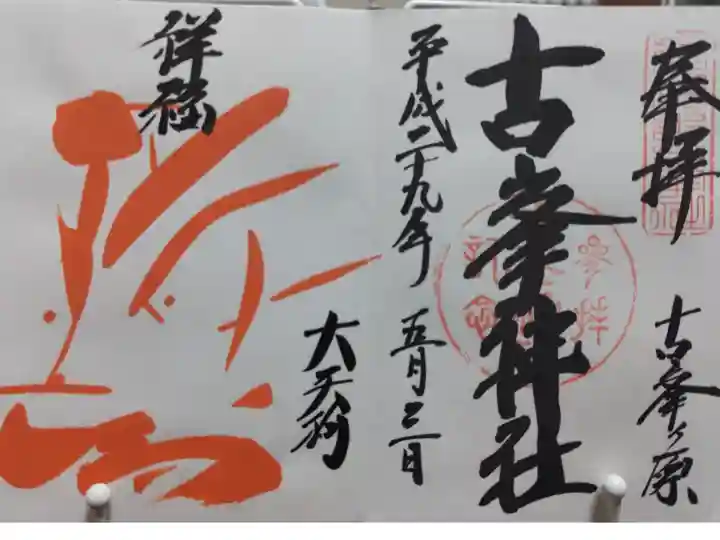 奉拝
古峯ヶ原
古峯神社
平成二十九年
五月三日
大天狗
祥福